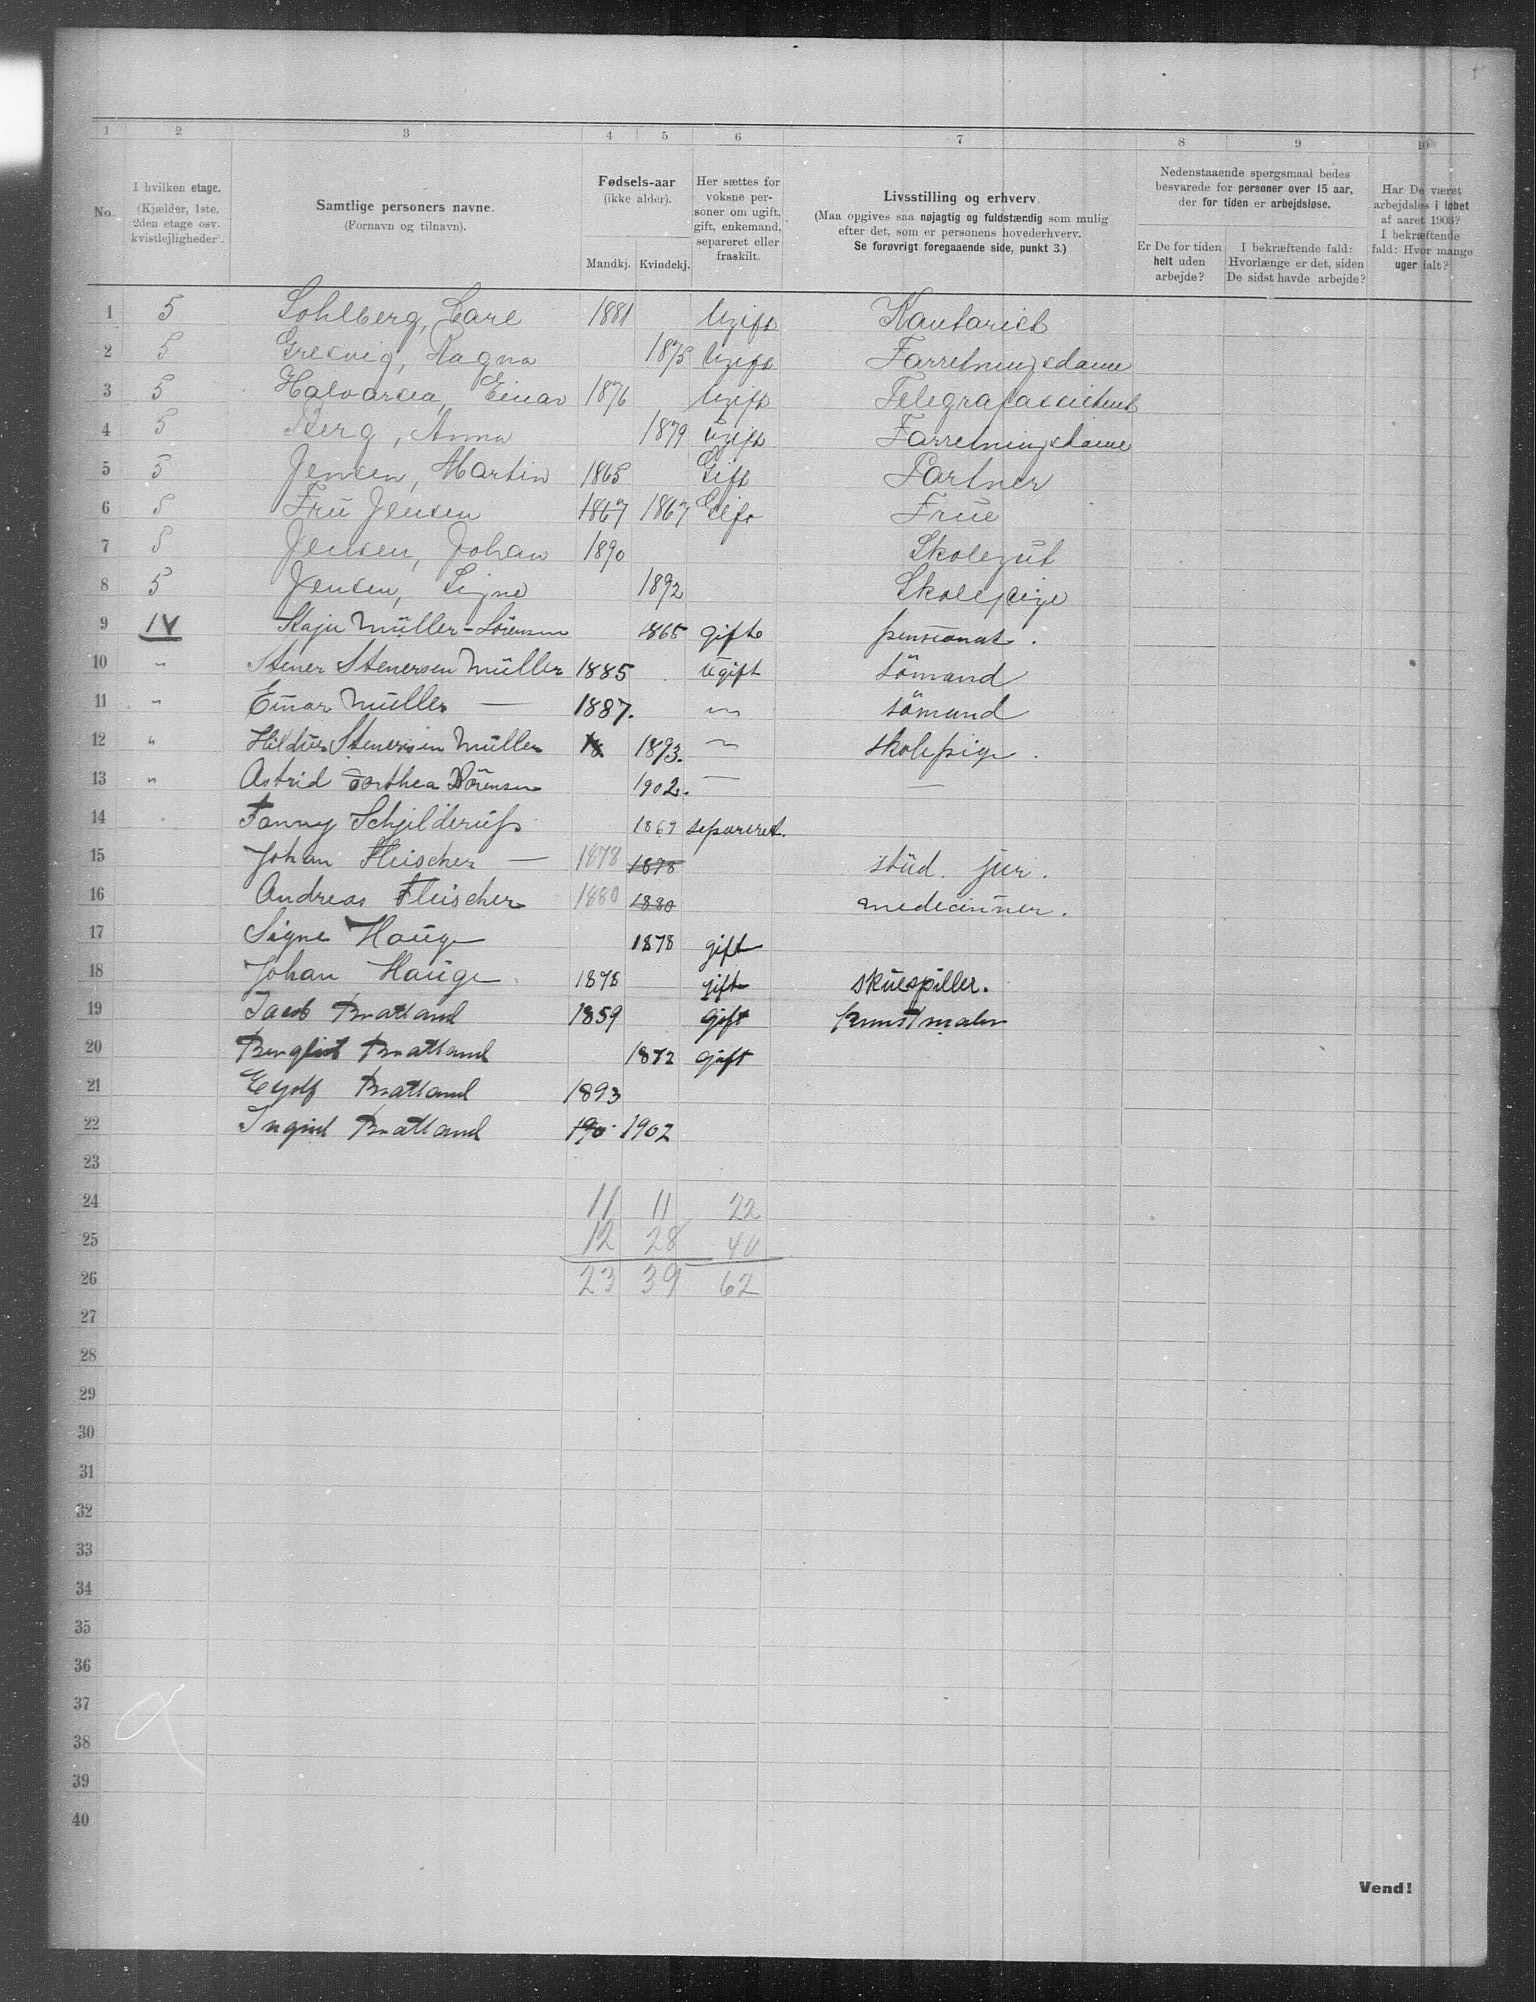 1 2 3 4 5 6 7 8 9 10
No.
I hvilken etage.
(Kjælder, 1ste, 2den etage osv. kvistlejligheder.
Samtlige personers navne.
(Fornavn og tilnavn).
Fødsels-aar
(ikke alder).
Mandkj. Kvindekj.
Her sættes for voksne personer om ugift, gift, enkemand, separeret eller fraskilt.
Livsstilling og erhverv.
(Maa opgives saa nøjagtig og fuldstændig som mulig efter det, som er personens hovederhverv.
Se forøvrigt foregaaende side, punkt 3.)
Nedenstaaende spørgsmaal bedes besvarede for personer over 15 aar, der for tiden er arbejdsløse.
Er De for tiden helt uden arbejde?
I bekræftende fald: Hvorlænge er det, siden De sidst havde arbejde?
Har De været arbejdsløs i løbet af aaret 1903? I bekræftende fald: Hvor mange uger ialt?
1 5 Sohlberg, Carl 1881 Ugift Kantorist
2 5 Gresvig, Ragna 1875 Ugift Farretningsdame
3 5 Halvorsen, Einar 1876 Ugift Telegrafassistent
4 5 Berg, Anna 1879 Ugift Farretningsdame
5 5 Jensen, Martin 1865 Gift Partner
6 5 Frü Jensen 1867 1867 Gift Früe
7 5 Jensen, Johan 1890 Skolegüt
8 5 Jensen, Signe 1892 Skolepige
9 IV Kaja Müller-Sörensen 1865 gift pensionat.
10 " Stener Stenersen Müller 1885 ugift sömand
11 " Einar Müller — 1887. " sömand
12 " Hildur Stenersen Müller 18 1893. " skolepige.
13 " Astrid Dorthea Sörensen 1902. — —
14 Fanny Schjelderup 1869 separeret.
15 Johan Fleischer — 1878 1878 stüd. jur.
16 Andreas Fleischer 1880 1880 medeciner.
17 Signe Hauge 1878 gift
18 Johan Hauge 1878 gift skuespiller.
19 Jacob Bratland 1859 gift kunstmaler
20 Bergliot Bratland 1872 gift
21 Eyolf Bratland 1893
22 Ingrid Bratland 190 1902
23
24 11 11 22
25 12 28 40
26 23 39 62
27
28
29
30
31
32
33
34
35
36
37
38
39
40
Vend!